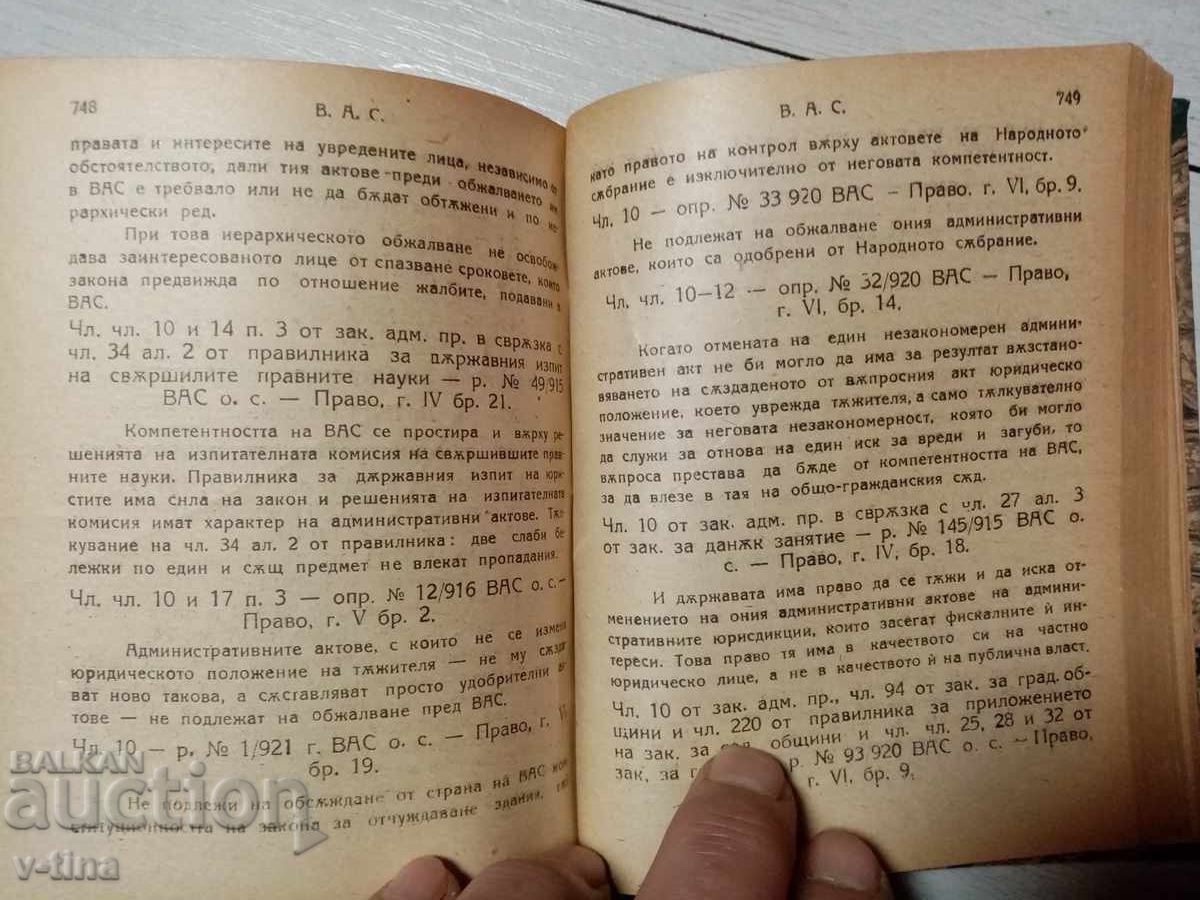 748
В. А. С.
правата и интересите на увредените лица, независимо от
обстоятелството, дали тия актове преди обжалването им
в ВАС е требвало или не да бѫдат обтѫжени и по йе-
рархически ред.
При това иерархическото обжалване не освобож-
дава заинтересованото лице от спазване сроковете, които
закона предвижда по отношение жалбите, подавани в
ВАС.
Чл. чл. 10 и 14 п. 3 от зак. адм. пр. в свръзка с
чл. 34 ал. 2 от правилника за дѫржавния изпит
на свѫршилите правните науки — р. № 49/915
ВАС о. с. — Право, г. IV бр. 21.
Компетентността на ВАС се простира и вѫрху ре-
шенията на изпитателната комисия на свѫршившите прав-
ните науки. Правилника за дѫржавния изпит на юри-
стите има сила на закон и решенията на изпитателната
комисия имат характер на административни актове. Тѫл-
кувание на чл. 34 ал. 2 от правилника: две слаби бе-
лежки по един и сѫщ предмет не влекат пропадания.
Чл. чл. 10 и 17 п. 3 — опр. № 12/916 ВАС о. с.—
Право, г. V бр. 2.
Административните актове, с които не се изменя
юридическото положение на тѫжителя — не му създа-
ват ново такова, а сѫставляват просто удобрителни ак-
тове — не подлежат на обжалване пред ВАС.
Чл. 10 — р. № 1/921 г. ВАС о. с. — Право, г.
бр. 19.
Не подлежи на обсѫждане от страна на ВАС кон-
ституционността на закона за отчуждаване здания,
749
В. А. С.
като правото на контрол вѫрху актовете на Народното
сѫбрание е изключително от неговата компетентност.
Чл. 10 — опр. № 33 920 ВАС — Право, г. VI, бр. 9.
Не подлежат на обжалване ония административни
актове, които са одобрени от Народното сѫбрание.
Чл. чл. 10—12 — опр. № 32/920 ВАС — Право,
г. VI, бр. 14.
Когато отмената на един незакономерен админи-
стративен акт не би могло да има за резултат вѫзстано-
вяването на сѫздаденото от вѫпросния акт юридическо
положение, което уврежда тѫжителя, а само тѫлкувателно
значение за неговата незакономерност, която би могло
да служи за отнова на един иск за вреди и загуби, то
вѫпроса престава да бѫде от компетентността на ВАС,
за да влезе в тая на общо-гражданския сѫд.
Чл. 10 от зак. адм. пр. в свръзка с чл. 27 ал. 3
от зак. за данѫк занятие — р. № 145/915 ВАС о.
с. — Право, г. IV, бр. 18.
И дѫржавата има право да се тѫжи и да иска от-
менението на ония административни актове на админи-
стративните юрисдикции, които засегат фискалните ѝ ин-
тереси. Това право тя има в качеството си на частно
юридическо лице, а не в качеството ѝ на публична власт.
Чл. 10 от зак. адм. пр., чл. 94 от зак. за град. об-
щини и чл. 220 от правилника за приложението
на зак. за сел. общини и чл. чл. 25, 28 и 32 от
зак. за р. № 93 920 ВАС о. с. — Право,
г. VI, бр. 9.
BALKAN
auction
v-tina